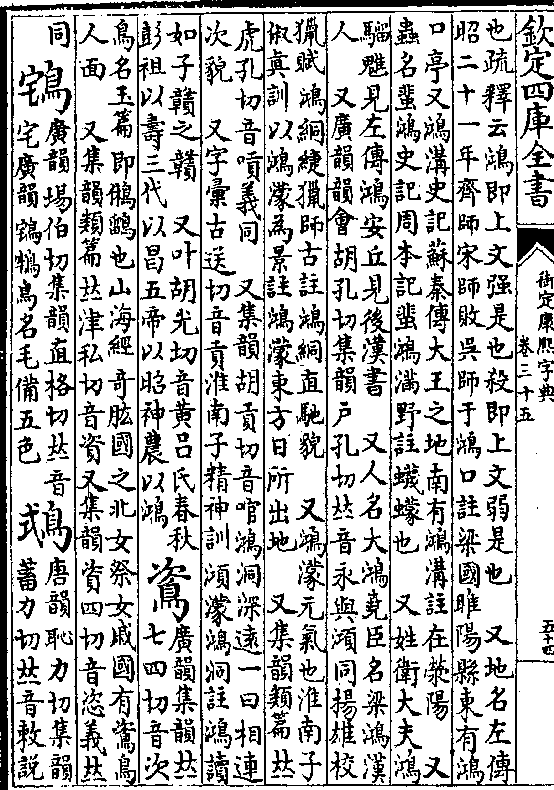 欽定四庫全書
御定康熙字典
卷三十五
五十四
也疏釋云鴻即上文强是也殺即上文弱是也　又地名左傳
昭二十一年齊師宋師敗吳師于鴻口註梁國睢陽縣東有鴻
口亭又鴻溝史記蘇秦傳大王之地南有鴻溝註在滎陽　又
蟲名蜚鴻史記周本記蜚鴻滿野註蠛蠓也　又姓衛大夫鴻
騮魋見左傳鴻安丘見後漢書　又人名大鴻堯臣名梁鴻漢
人　又廣韻韻會胡孔切集韻戸孔切𠀤音永與澒同揚雄校
獵賦鴻絧緁獵師古註鴻絧直馳貌　又鴻濛元氣也淮南子
俶真訓以鴻濛為景註鴻濛東方日所出地　又集韻類篇𠀤
虎孔切音嗊義同　又集韻胡貢切音哅鴻洞深遠一曰相連
次貌　又字彙古送切音貢淮南子精神訓澒濛鴻洞註鴻讀
如子贛之贛　又叶胡光切音黄吕氏春秋
彭祖以壽三代以昌五帝以昭神農以鴻
鴜廣韻集韻𠀤
七四切音次
鳥名玉篇即鵂鶹也山海經奇肱國之北女祭女戚國有鴜鳥
人面　又集韻類篇𠀤津私切音資又集韻資四切音恣義𠀤
同
𪀥廣韻場伯切集韻直格切𠀤音
宅廣韻𪀥鵴鳥名毛備五色
鳾唐韻恥力切集韻
蓄力切𠀤音敕説